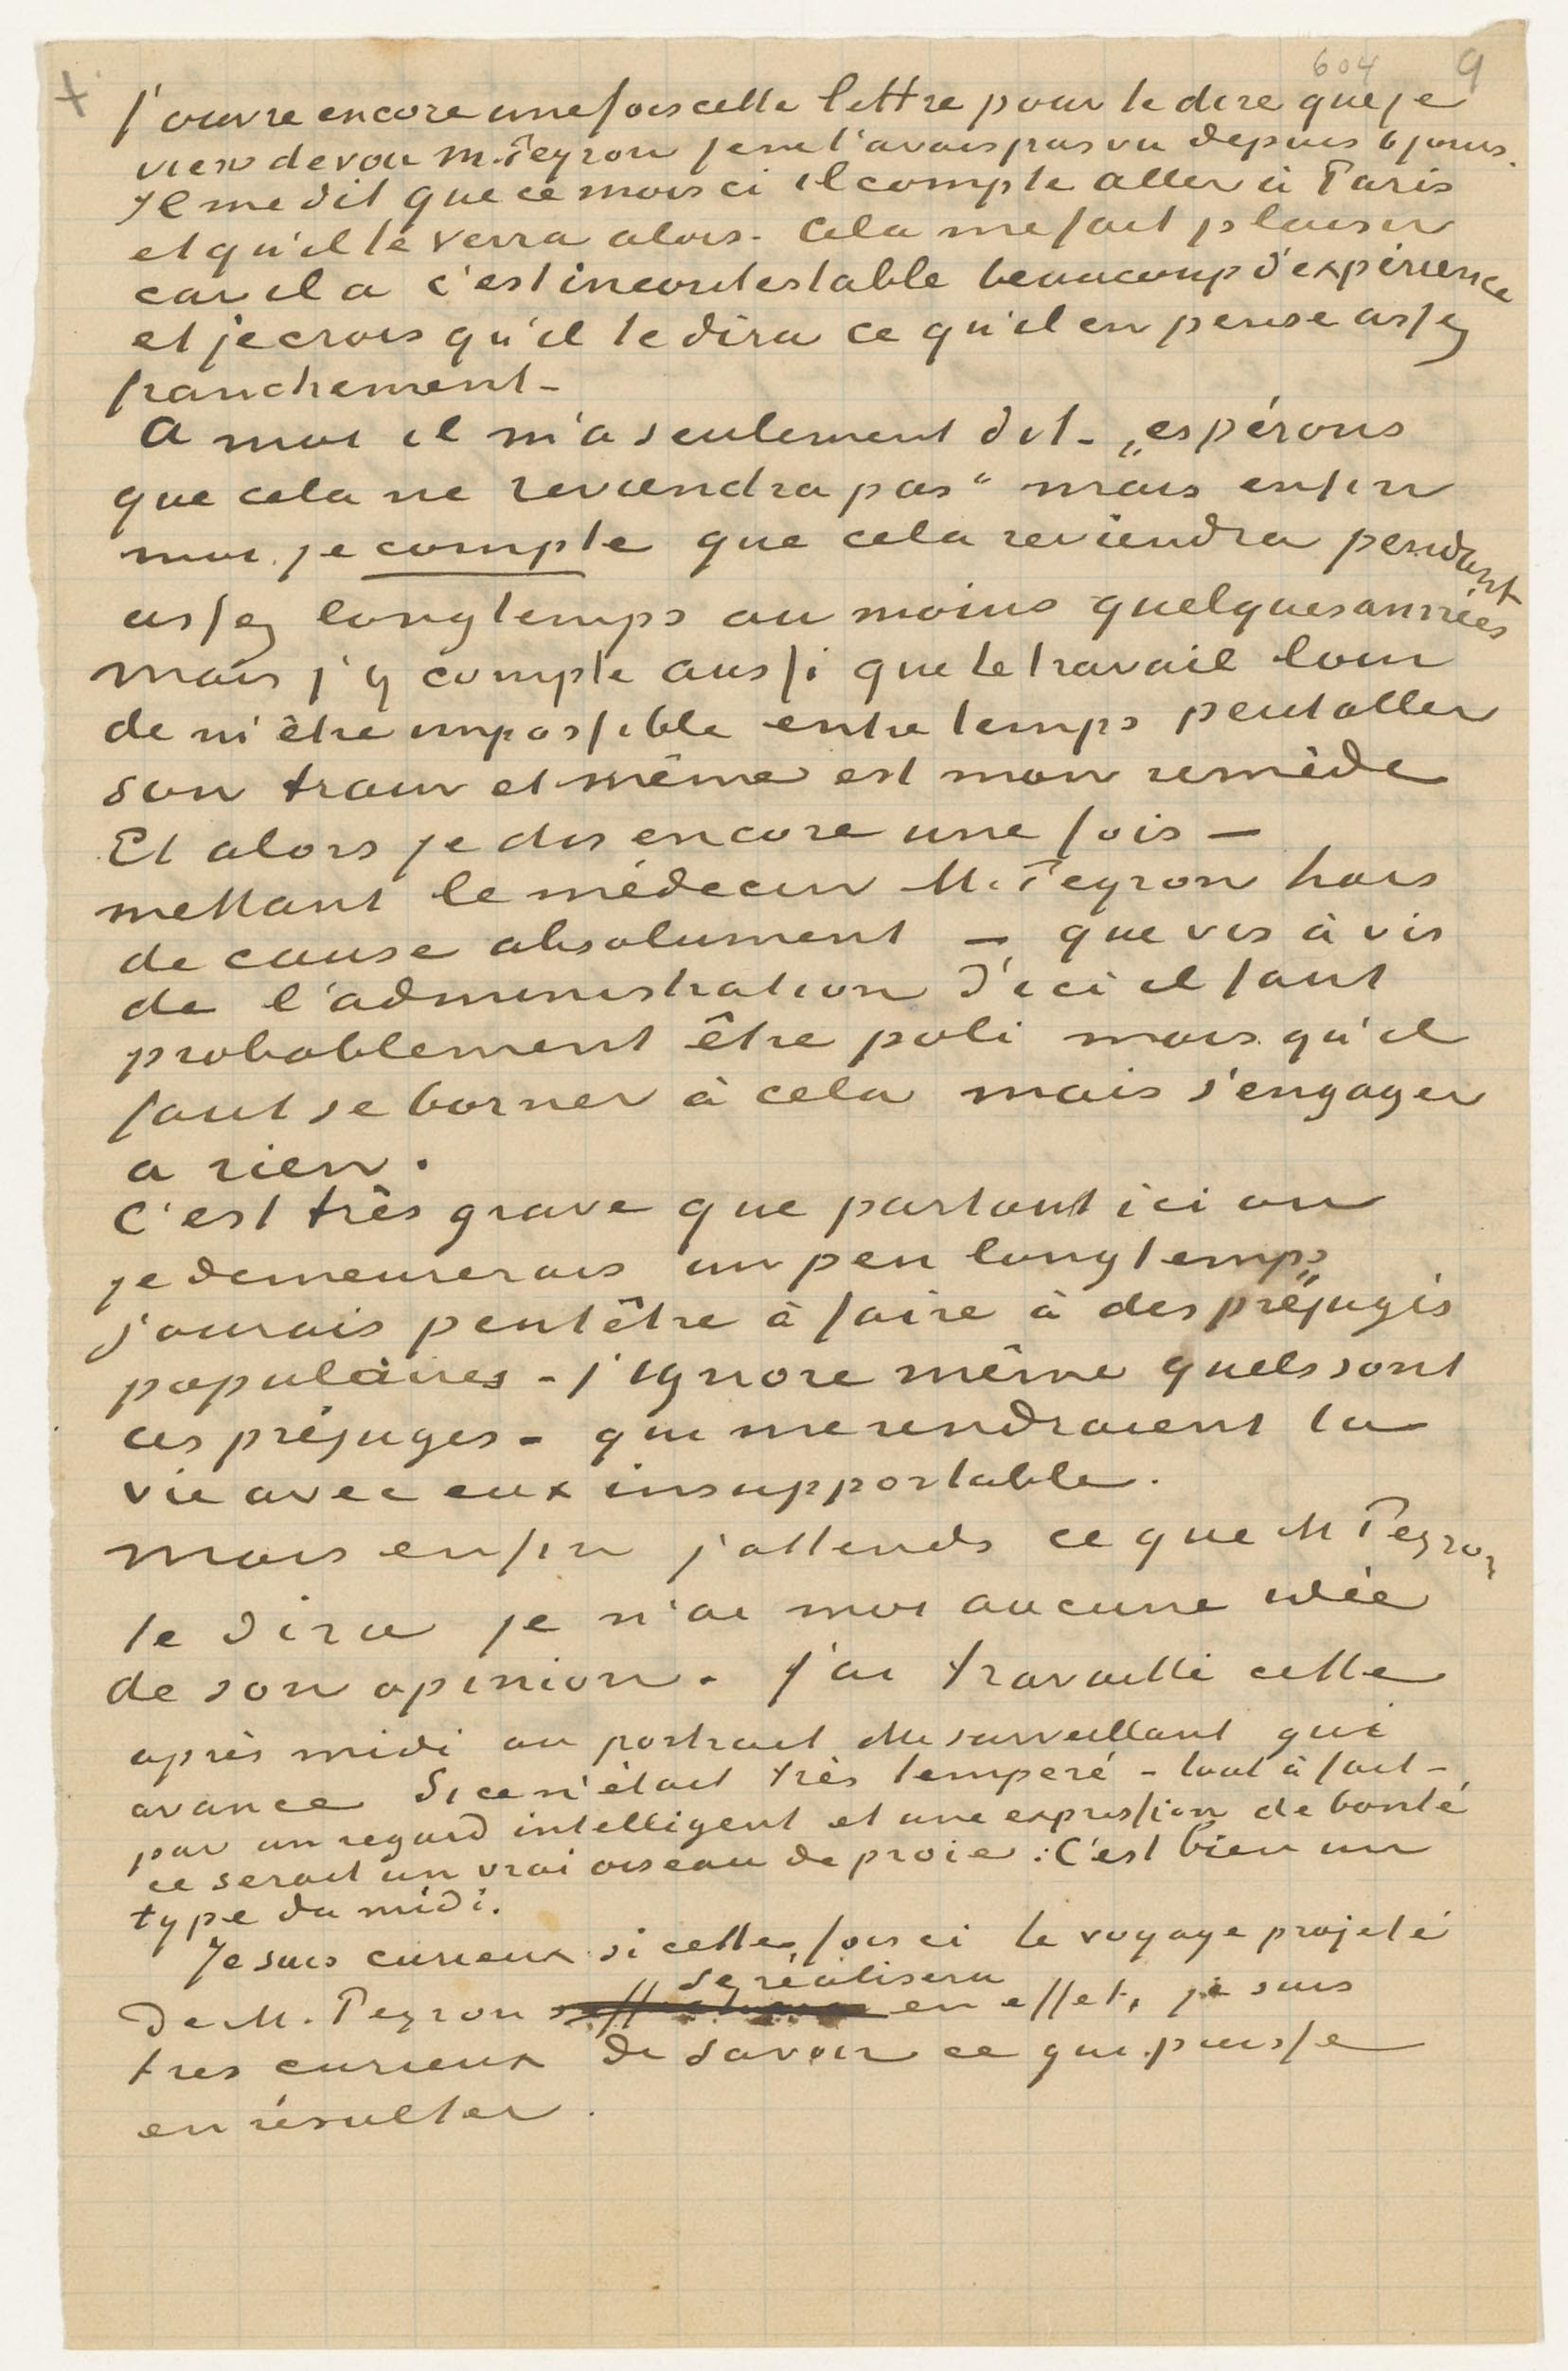 604 9
j'ouvre encore une fois cette lettre pour te dire que je
viens de voir M. Peyron je ne l'avais pas vu depuis 6 jours.
Il me dit que ce mois ci il compte aller à Paris
et qu'il te verra alors. Cela me fait plaisir
car il a c'est incontestable beaucoup d'expérience
et je crois qu'il te dira ce qu'il en pense assez
franchement –
A moi il m'a seulement dit – „espérons
que cela ne reviendra pas“ mais enfin
moi je compte que cela reviendra pendant
assez longtemps au moins quelques années
mais j'y compte aussi que le travail loin
de m'être impossible entretemps peut aller
son train et même est mon remède
Et alors je dis encore une fois –
mettant le médecin M. Peyron hors
de cause absolument – que vis à vis
de l'administration d'ici il faut
probablement être poli mais qu'il
faut se borner à cela mais s'engager
a rien.
C'est très grave que partout ici ou
je demeurerais un peu longtemps
j'aurais peutêtre à faire à des préjugés
populaires – j'ignore même quels sont
ces préjuges – qui me rendraient la
vie avec eux insupportable.
mais enfin j'attends ce que M Peyron
te dira je n'ai moi aucune idée
de son opinion. J'ai travaillé cette
après midi au portrait du surveillant qui
avance Si ce n'était très temperé – tout à fait –
par un regard intelligent et une expression de bonté
ce serait un vrai oiseau de proie. C'est bien un
type du midi.
Je suis curieux si cette fois ci le voyage projeté
se réalisera
de M. Peyron en effet, je suis
tres curieux de savoir ce qui puisse
en résulter.